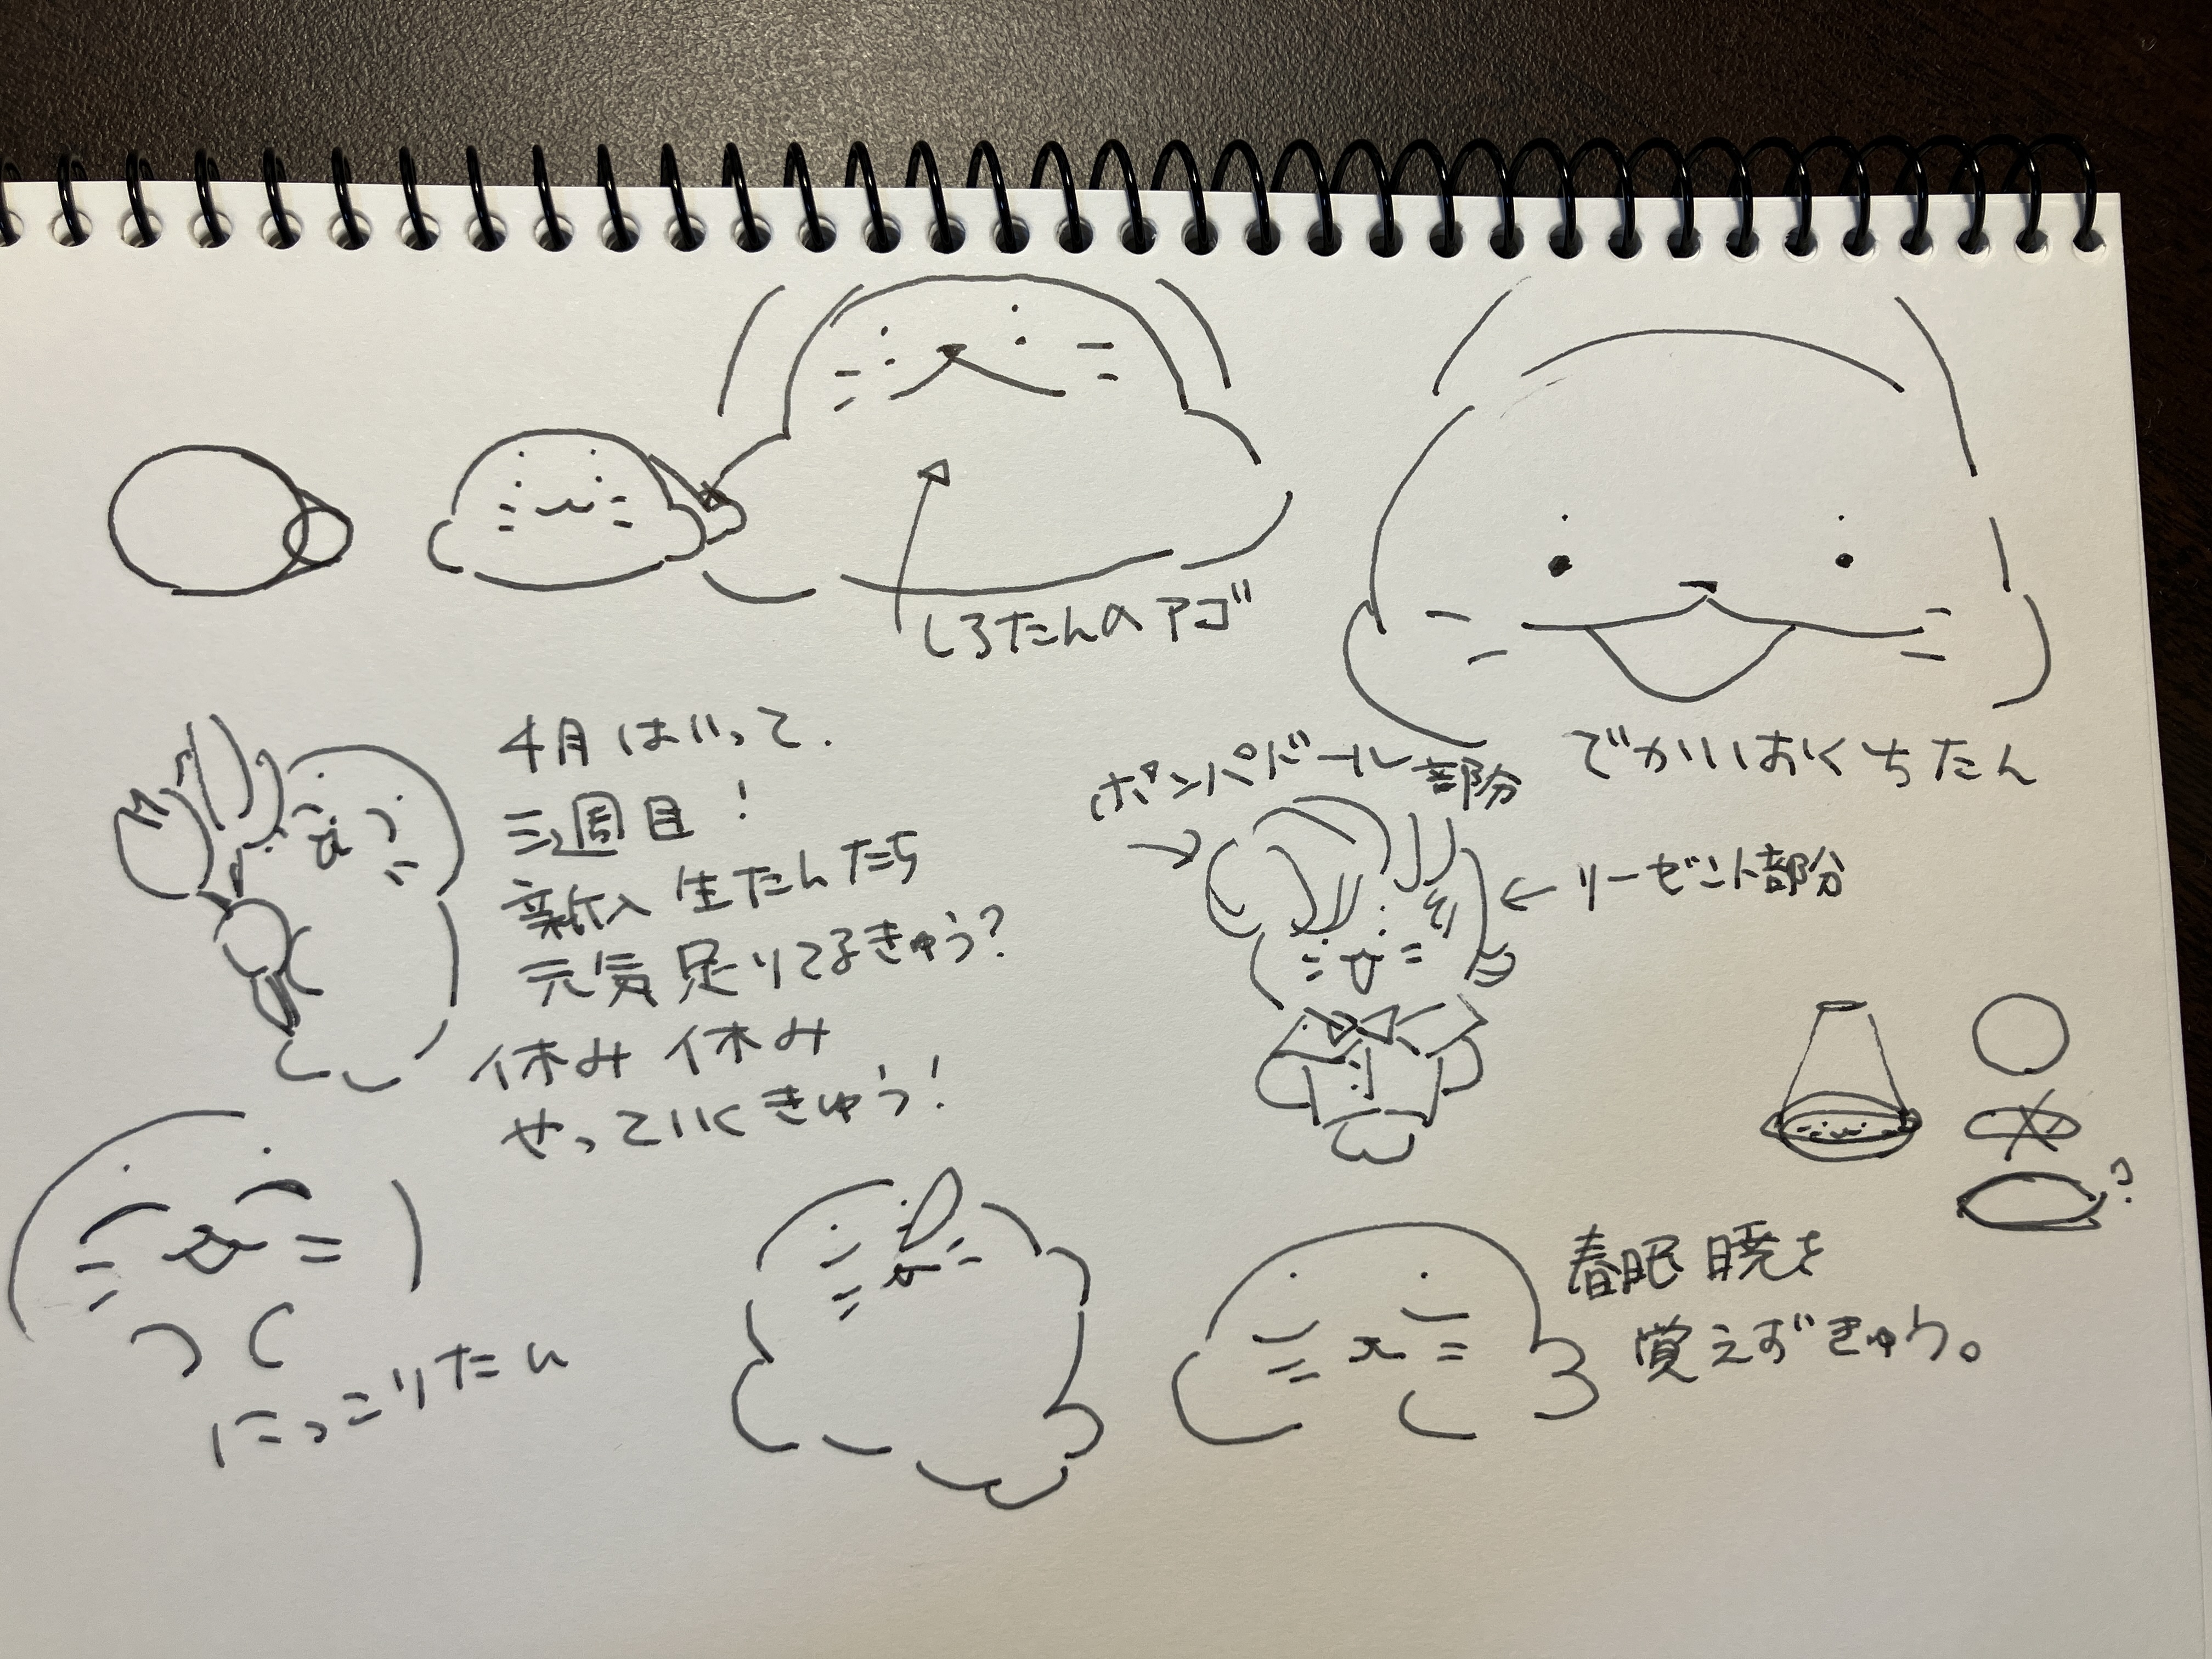 しろたんのアゴ
でかいおくちたん
4月はいって.
三週目!
新入生たんたち
元気足りてるきゅう?
休み休み
やっていくきゅう!
ポンパドール部分
リーゼント部分
にっこりたん
春眠暁を
覚えずきゅう。
?